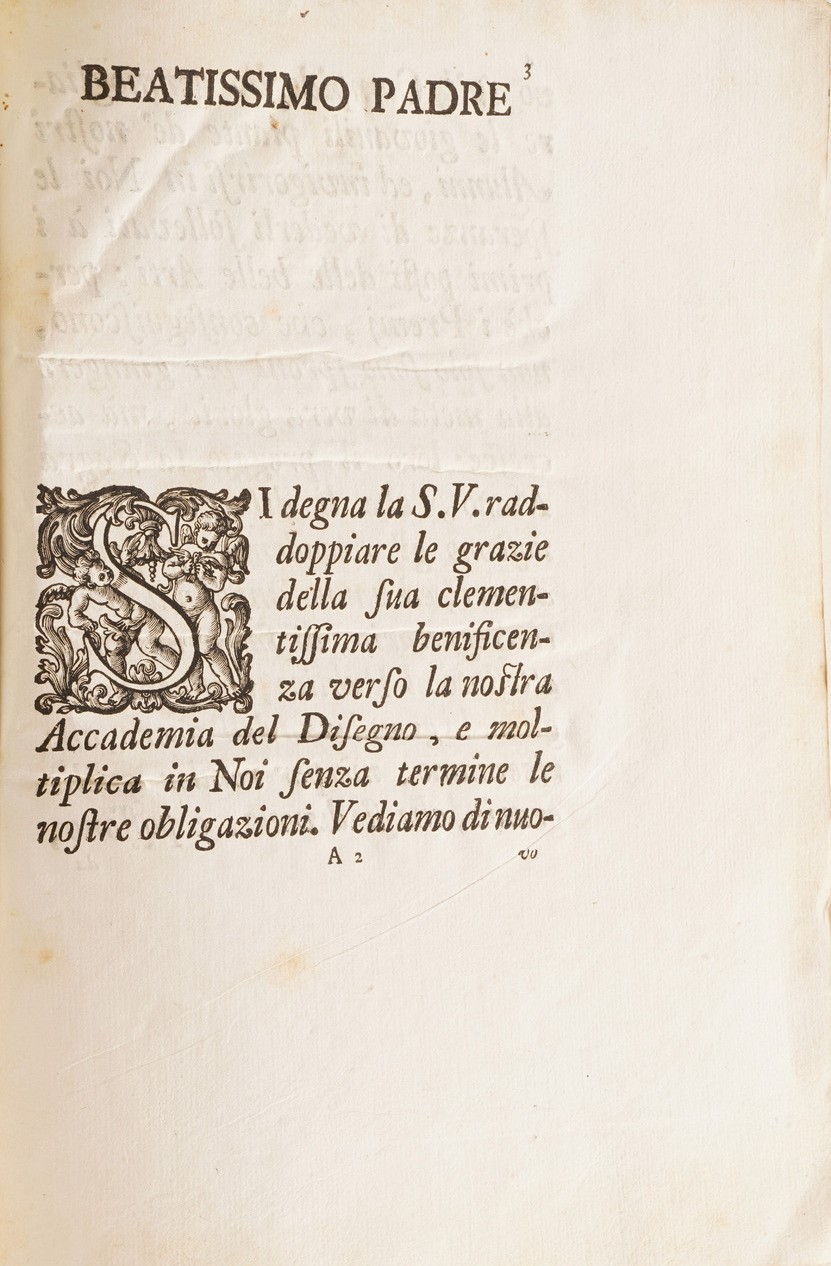 3
BEATISSIMO PADRE
SI degna la S.V. rad-
doppiare le grazie
della ſua clemen-
tiſſima benificen-
za verſo la noſtra
Accademia del Diſegno, e mol-
tiplica in Noi ſenza termine le
noſtre obligazioni. Vediamo di nuo-
A 2 vo